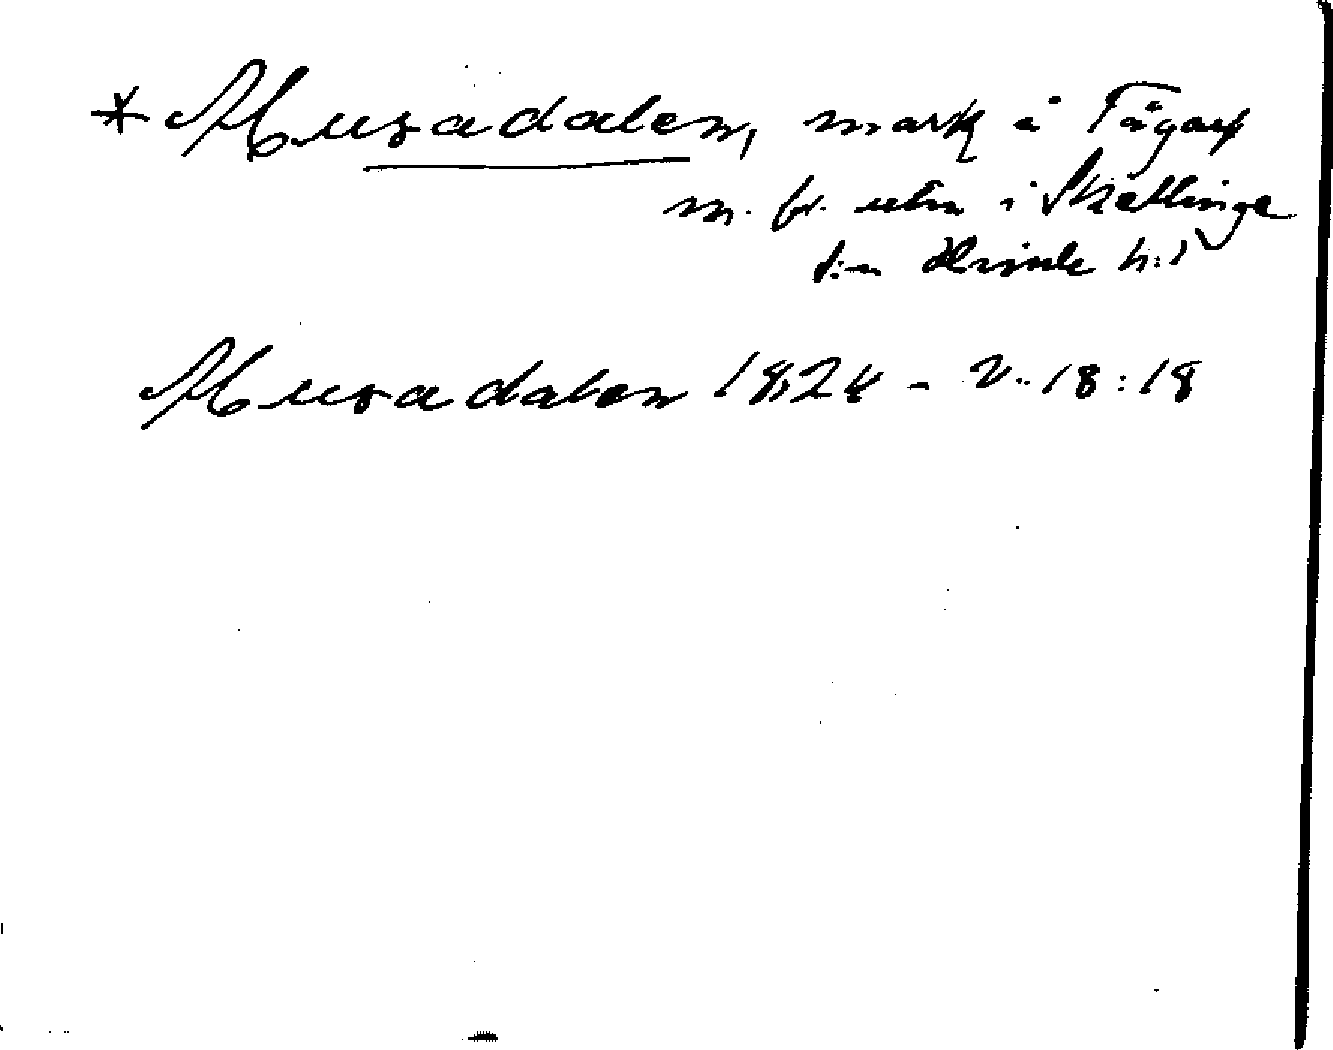 * Musadalen, mark å Tågarp
m. fl. utm i Skällinge
s:n Himle h:d
Musadalen 1824 - 2..18:18